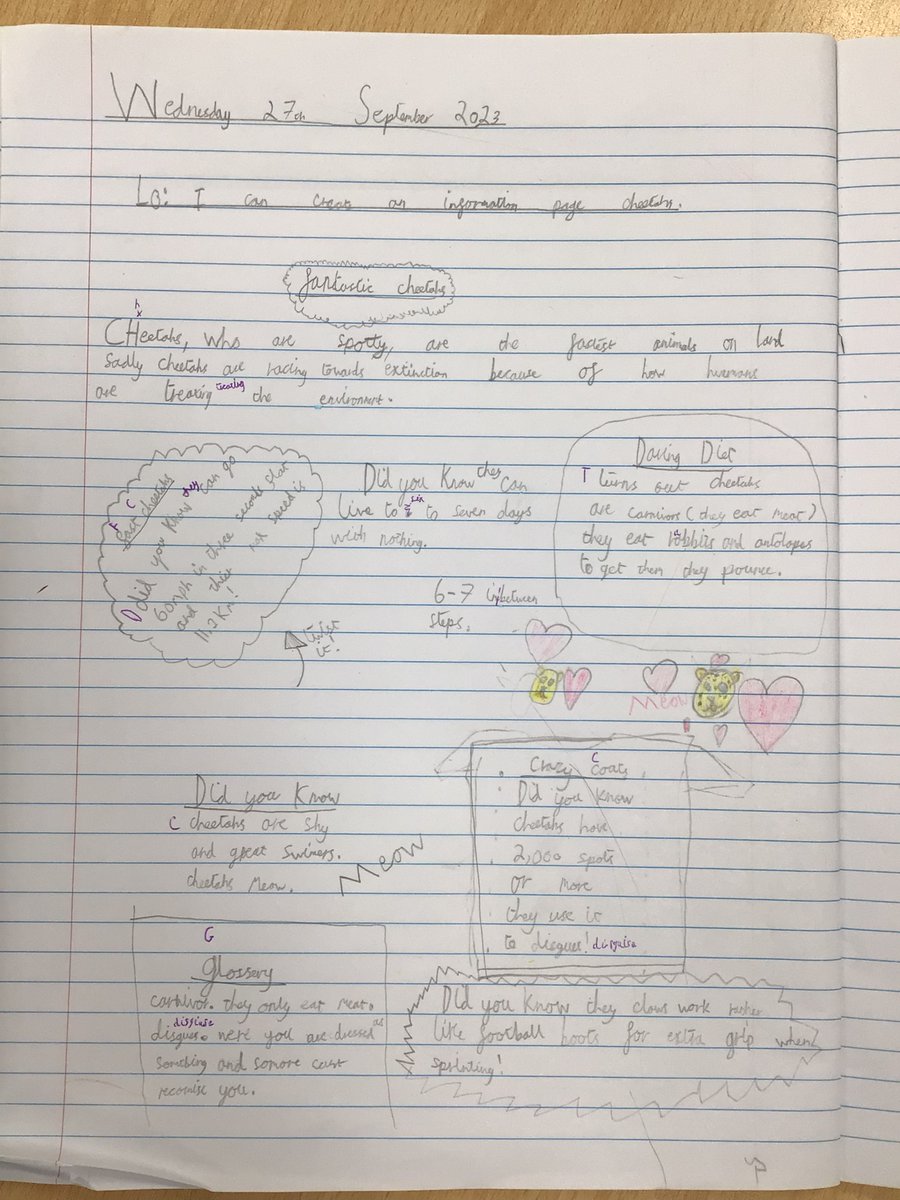 Wednesday 27th September 2023
Lo: I can create an information page cheetahs.
fantastic cheetahs
h
CHeetahs, who are spotty, are the fastest animals on land
Sadly cheetahs are racing towards extinction because of how humans
are treaking treating the environment.
F C
fast cheetahs
D did you know they can go
60mph in three seconds flat
and their top speed is
112 Km!
twist
it!
Did you Know they can
live to six to seven days
with nothing.
6-7 inbetween
steps.
Daring Diet
T turns out cheetahs
are carnivors (they eat meat)
they eat rabbits and antolopes
to get them they pounce.
Meow
Did you Know
C cheetahs are shy
and great swimers.
cheetahs Meow.
Meow
C
Crazy coats.
Did you Know
cheetahs have
2,000 spots
or more
they use it
to disgues! disguise
G
glossery
carnivor. they only eat meat.
disguise
disgues. were you are dressed as
something and somone cant
reconise you.
Did you Know they claws work rather
like football boots for extra grip when
sprinting!